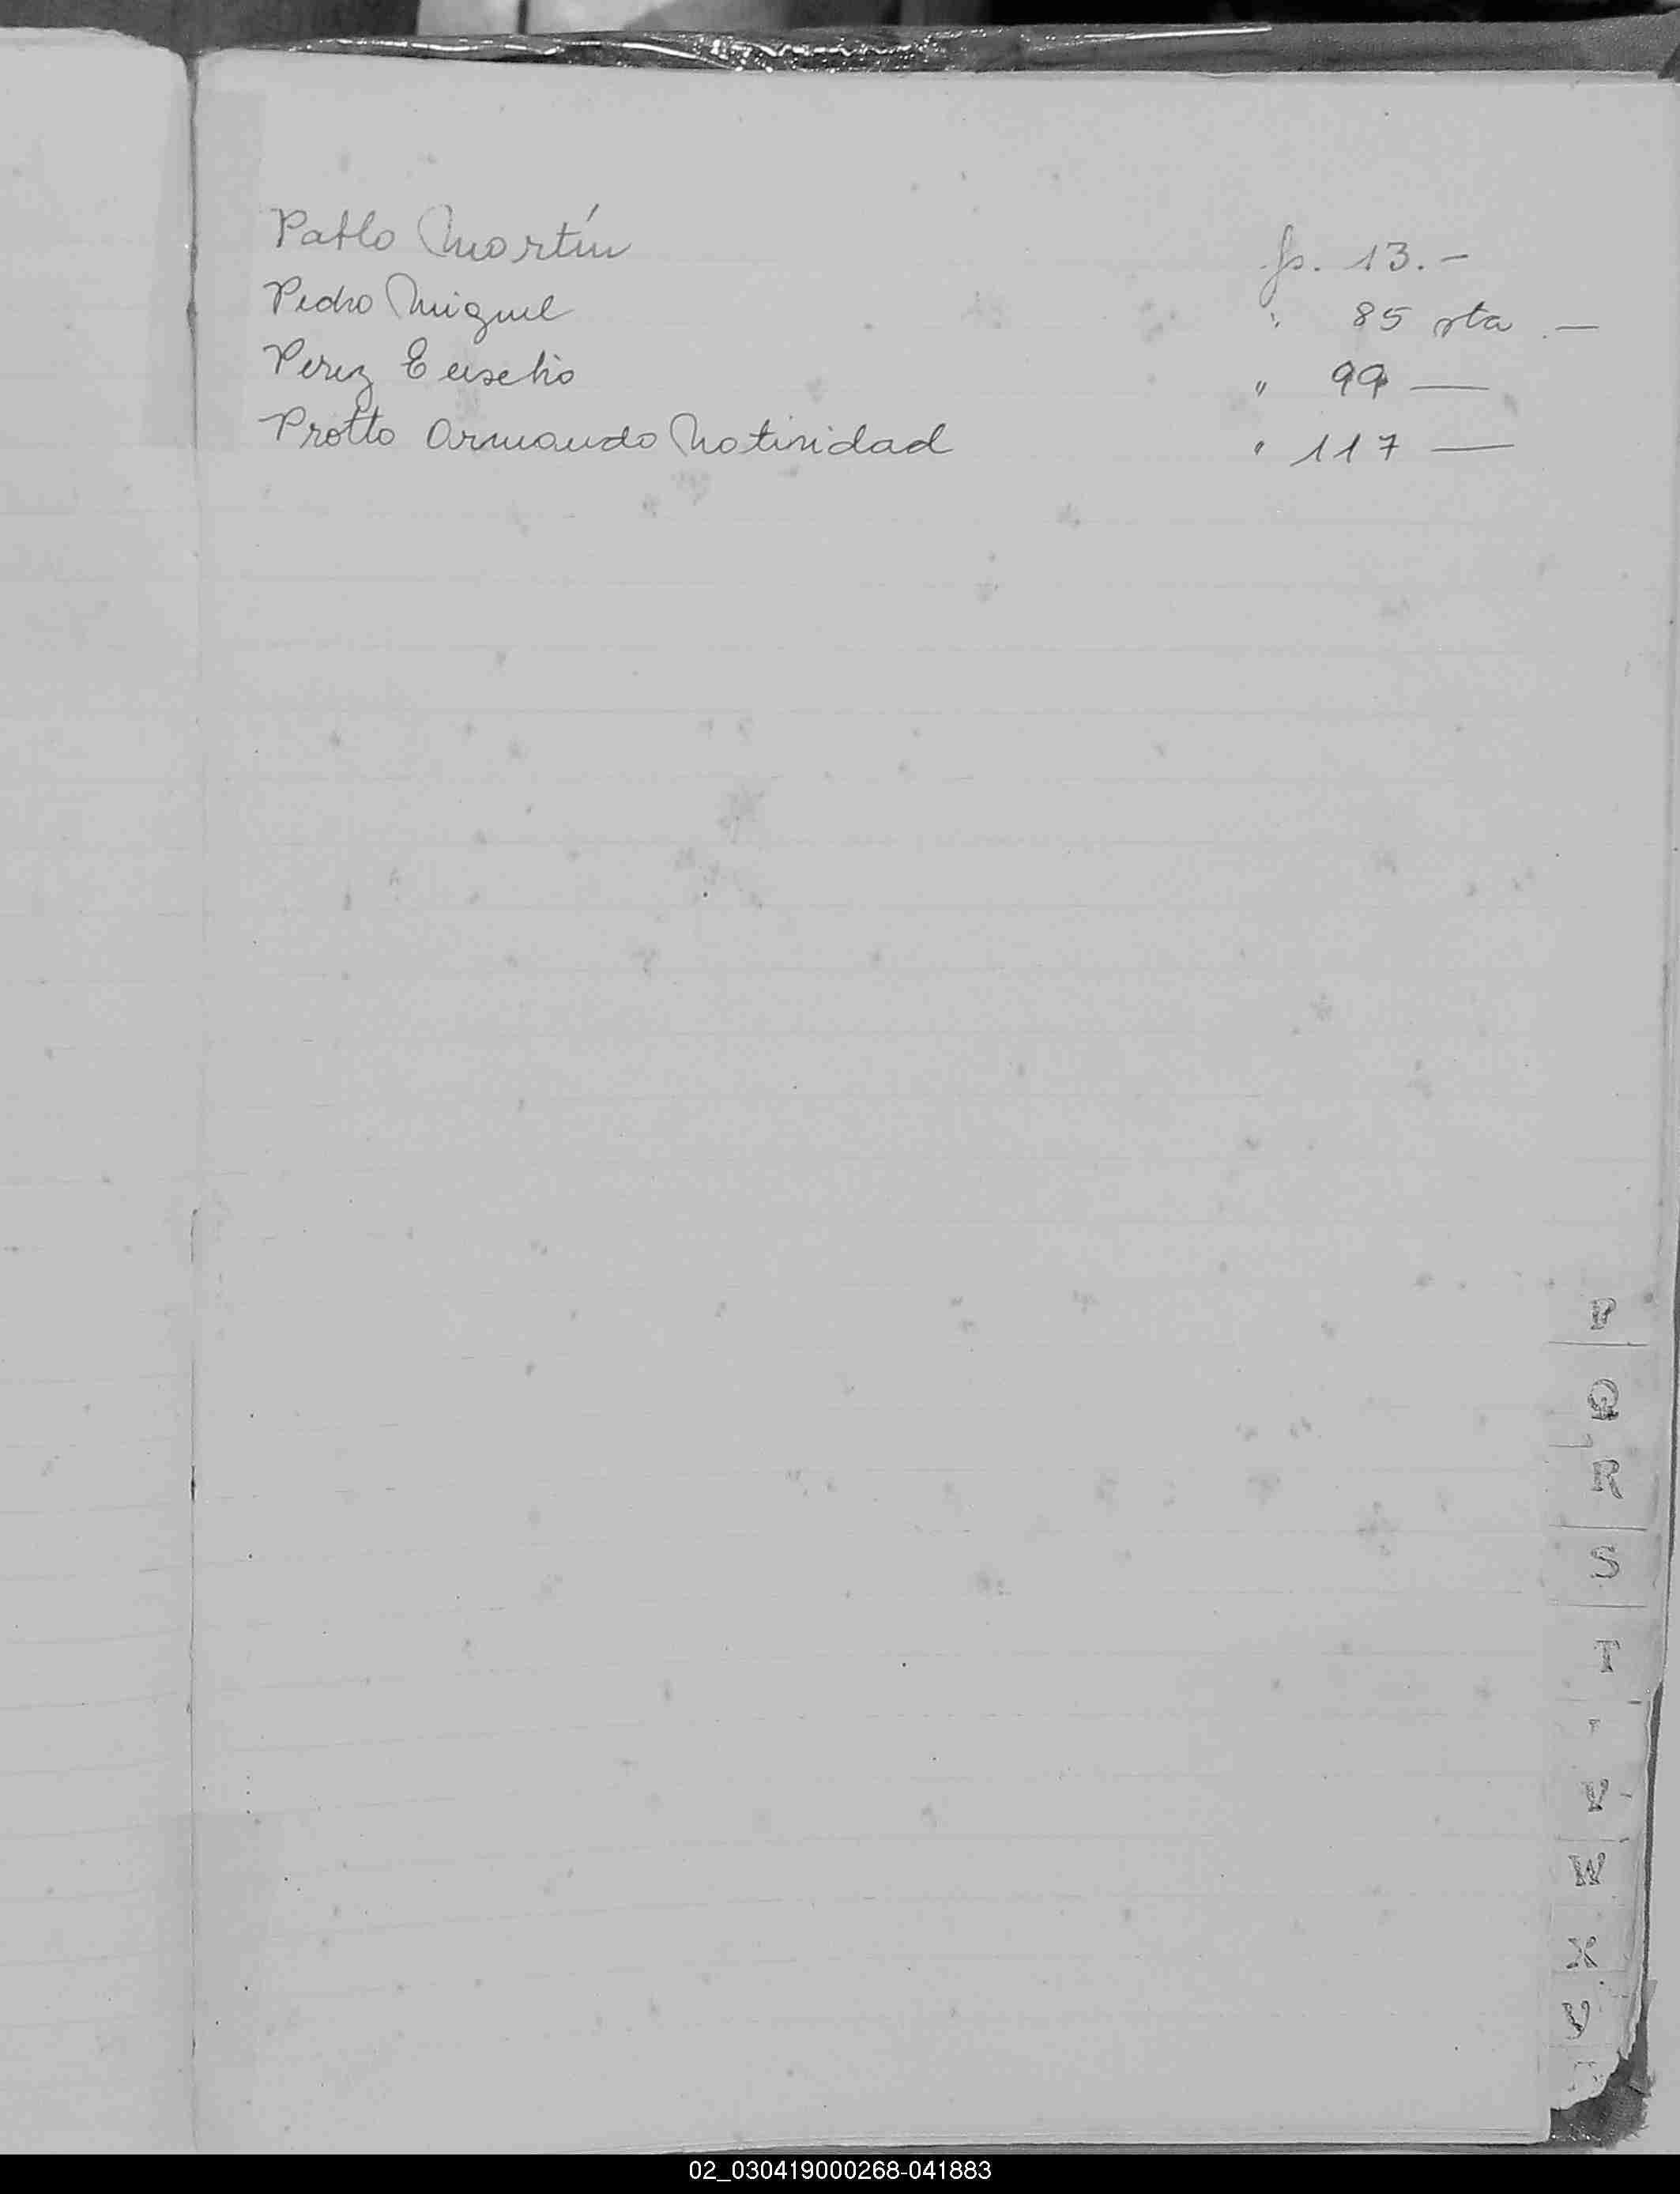 Pablo Martín fs. 13.-
Pedro Miguel " 85 vta. —
Perez Eusebio " 99 —
Protto Armando Natividad " 117 —
P
Q
R
S
T
V
W
X
02_030419000268-041883